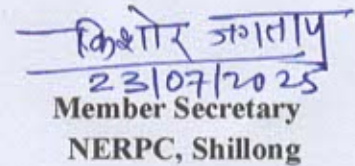 किशोर जगताप
23/07/2025
Member Secretary
NERPC, Shillong